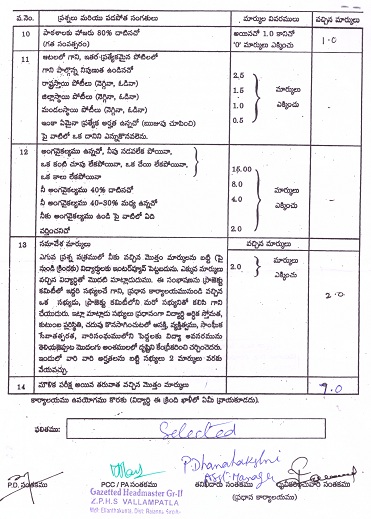 వ.నెం. ప్రశ్నలు మరియు పరపోత సంగతులు మార్కుల వివరములు వచ్చిన మార్కులు
10 పాఠశాలకు హాజరు 80% దాటినచో అయినచో 1.0 కానిచో 1.0
(గత సంవత్సరం) '0' మార్కులు ఎక్కించు
11 ఆటలలో గాని, ఇతర ప్రత్యేకమైన పోటీలలో
గాని పాల్గొన్న నిపుణుత ఉండినచో 2.5
రాష్ట్రస్థాయి పోటీలు (నెగ్గినా, ఓడినా) 1.5 మార్కులు
జిల్లాస్థాయి పోటీలు (నెగ్గినా, ఓడినా) 1.0 ఎక్కించు
మండలస్థాయి పోటీలు (నెగ్గినా, ఓడినా) 0.5
ఇంకా ఏమైనా ప్రత్యేక అర్హత ఉన్నచో (ఋజువు చూపించి)
పై వాటిలో ఒక దానిని ఎన్నుకొనవలెను.
12 అంగవైకల్యము ఉన్నచో, నీవు నడవలేక పోయినా,
ఒక కంటి చూపు లేకపోయినా, ఒక చేయి లేకపోయినా, 15.00
ఒక కాలు లేకపోయినా 8.0 మార్కులు
నీ అంగవైకల్యము 40% దాటినచో 4.0 ఎక్కించు
నీ అంగవైకల్యము 40-30% మధ్య ఉన్నచో
నీకు అంగవైకల్యము ఉండి పై వాటిలో ఏది
వర్తించనిచో 2.0
13 సమావేశ మార్కులు వచ్చిన మార్కులు
ఎగువ ప్రశ్న పత్రములో నీకు వచ్చిన మొత్తం మార్కులను బట్టి (పై 2.0 మార్కులు
నుండి క్రిందకు) విద్యార్థులకు ఇంటర్వ్యూలో పెట్టబడును. ఎక్కువ మార్కులు ఎక్కించు
వచ్చిన విద్యార్థితో మొదటి మాట్లాడబడును. ఈ సంభాషణను ప్రాజెక్టు 2.0
కమిటీలో ఇద్దరి సభ్యులచే గాని, ప్రధాన కార్యాలయమునుండి వచ్చిన
ఒక సభ్యుడు, ప్రాజెక్టు కమిటీలోని మరో సభ్యునితో కలిసి గాని
చేయుదురు. ఇట్లా మాట్లాడు సభ్యులు ప్రధానంగా విద్యార్థి ఆర్థిక స్తోమత,
కుటుంబ పరిస్థితి, చదువు కొనసాగించుటలో ఆసక్తి, వ్యక్తిత్వము, సాంఘీక
సేవాతత్పరత, వారిసంఘములోని పెద్దలకు విద్యా అవసరమును
తెలియజెప్పుట మొదలగు అంశములలో దృష్టిని కేంద్రీకరించి చర్చించెదరు.
ఇందులో వారి వారి అర్హతలను బట్టి సభ్యులు 2 మార్కులు వరకు
వేయవచ్చు.
14 మౌఖిక పరీక్ష అయిన తరువాత వచ్చిన మొత్తం మార్కులు 9.0
కార్యాలయము ఉపయోగము కొరకు (విద్యార్థి ఈ క్రింది ఖాళీలో ఏమీ వ్రాయకూడదు).
ఫలితము: Selected
P.Dhanalakshmi
Asst-Manager
P.O. సంతకము PCC / PA సంతకము తనిఖీదారు సంతకము ధృవీకరించువారి సంతకము
(ప్రధాన కార్యాలయము)
Gazetted Headmaster Gr-II
Z.P.H.S VALLAMPATLA